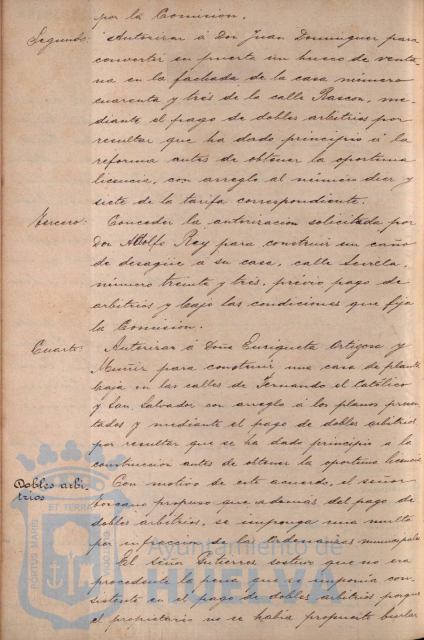 por la Comision.
Segundo: Autorizar á Don Juan Dominguez para
convertir en puerta un hueco de venta-
na en la fachada de la casa número
cuarenta y tres de la calle Rascon, me-
diante el pago de dobles arbitrios por
resultar que ha dado principio á la
reforma antes de obtener la oportuna
licencia, con arreglo al número diez y
siete de la tarifa correspondiente.
Tercero: Conceder la autorizacion solicitada por
Don Adolfo Rey para construir un caño
de desagüe á su casa, calle Sevilla,
número treinta y tres, prévio pago de
arbitrios y bajo las condiciones que fija
la Comision.
Cuarto: Autorizar á Doña Enriqueta Ortigosa y
Muñiz para construir una casa de planta
baja en las calles de Fernando el Católico
y San Salvador con arreglo á los planos presen-
tados y mediante el pago de dobles arbitrios
por resultar que se ha dado principio á la
construccion antes de obtener la oportuna licencia
Dobles arbi-
trios
Con motivo de este acuerdo, el señor
Toscano propuso que además del pago de
dobles arbitrios, se imponga una multa
por infraccion de las Ordenanzas municipales
El señor Gutierrez sostuvo que no era
procedente la pena que se imponia con-
sistente en el pago de dobles arbitrios porque
el propietario no se habia propuesto burlar
Ayuntamiento de
HUELVA
PORTUS MARIS
ET TERRAE
CUSTODIA